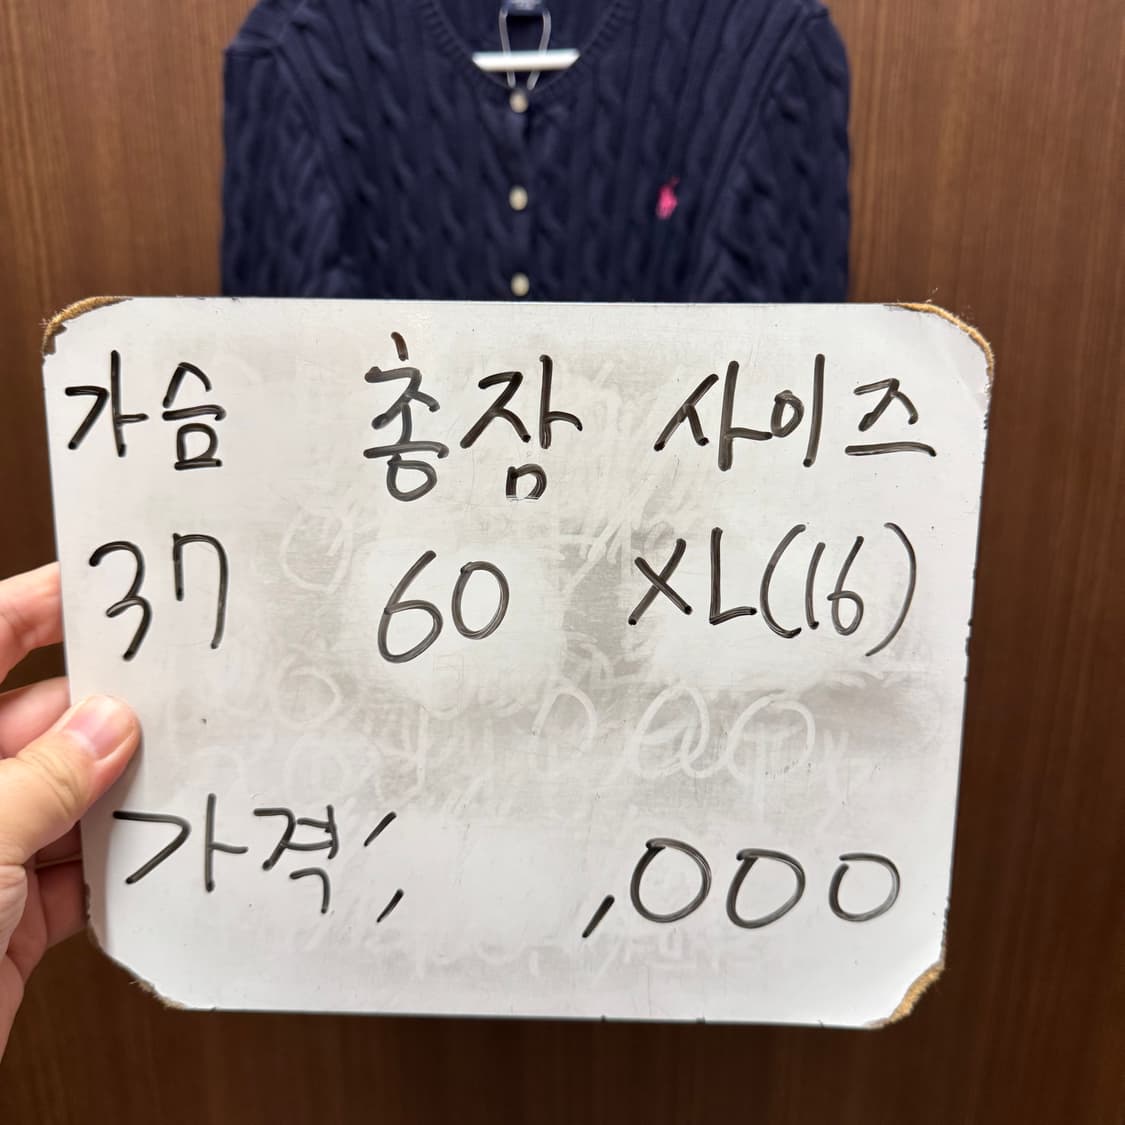 가슴 총잠 사이즈
37 60 XL(16)
가격; ,000